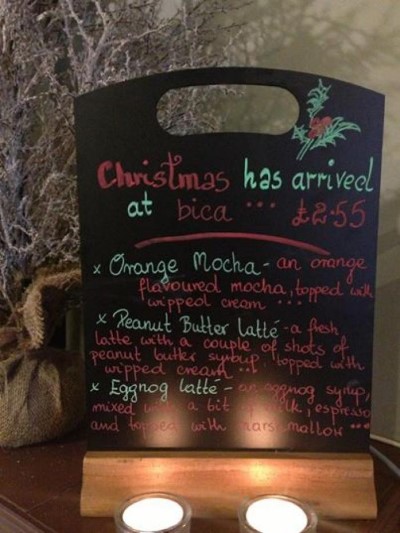 Christmas has arrived
at bica ... £2.55
x Orange Mocha - an orange
flavoured mocha, topped with
wipped cream ...
x Peanut Butter latté - a fresh
latte with a couple of shots of
peanut butter syrup, topped with
wipped cream ...
x Eggnog latté - an eggnog syrup,
mixed with a bit of milk, espresso
and topped with marshmallow ...